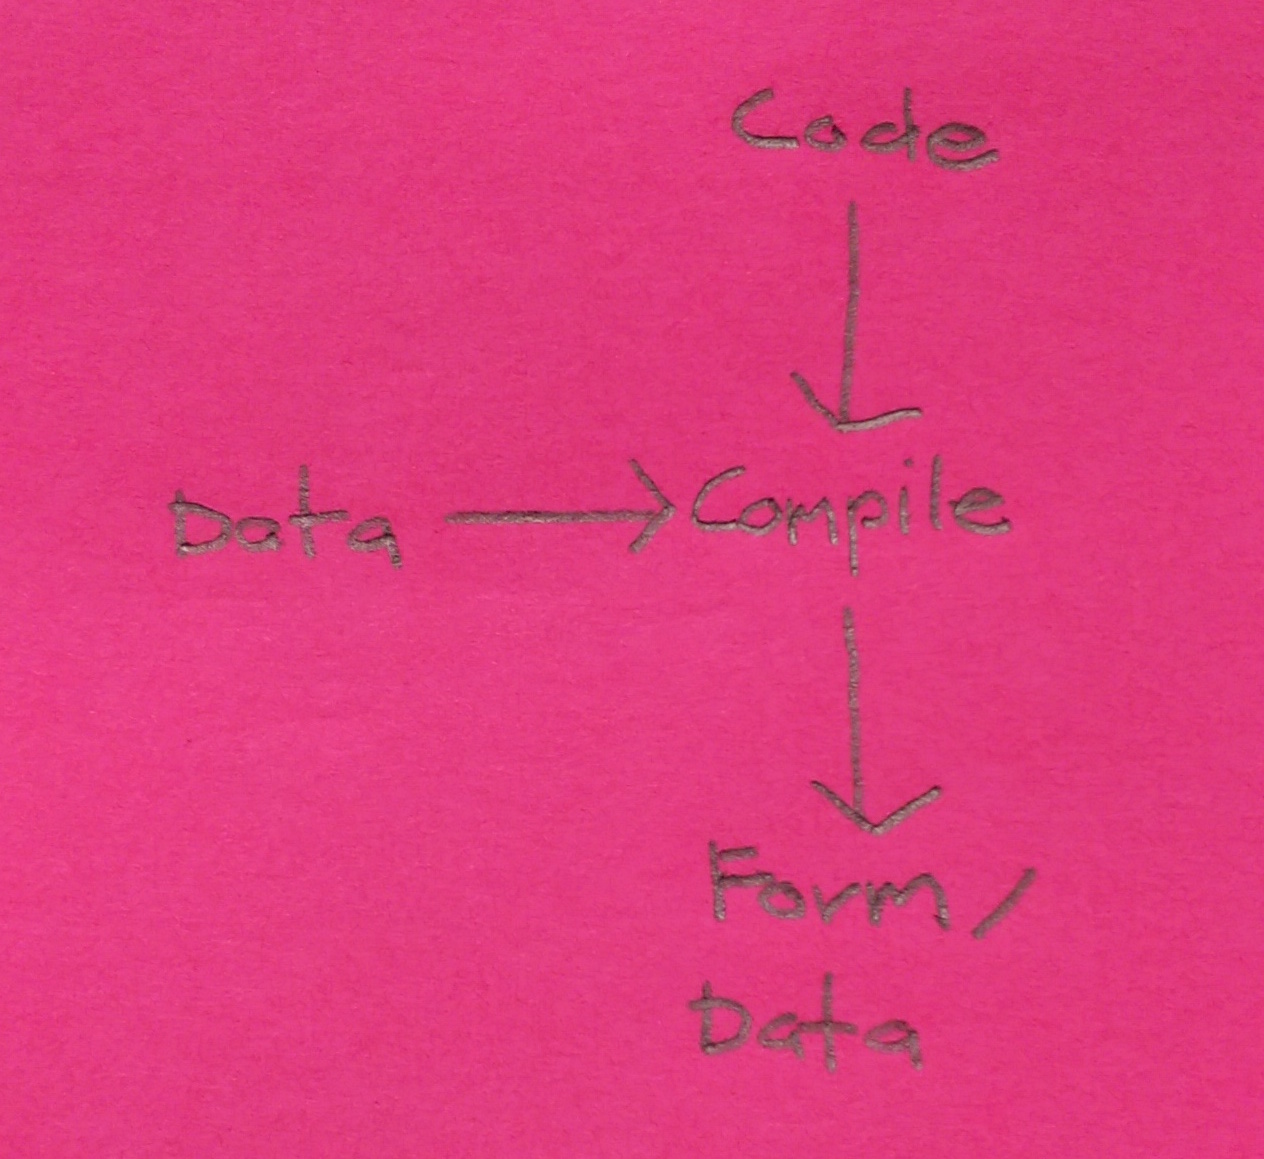 Code
Data → Compile
Form/
Data